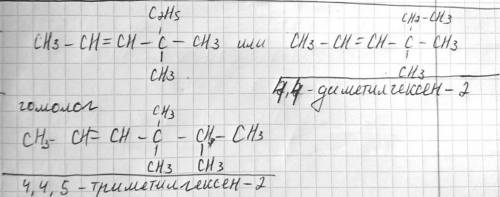 C2H5
CH3-CH=CH-C-CH3 или
CH3
CH2-CH3
CH3-CH=CH-C-CH3
CH3
4,4-диметилгексен-2
гомолог
CH3
CH3-CH=CH-C-CH-CH3
CH3 CH3
4,4,5-триметилгексен-2